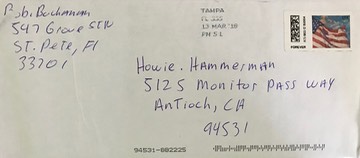 Rob. Buchanan
547 Grove St N
St. Pete, Fl
33701
TAMPA
FL 335
13 MAR '18
PM 5 L
FOREVER
Howie. Hammerman
5125 Monitor Pass Way
Antioch, CA
94531
94531-882225